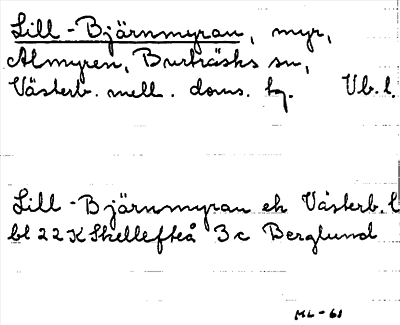 Lill-Björnmyran, myr,
Almyren, Burträsks sn,
Västerb. mell. doms. tg. Vb. l.
Lill-Björnmyran ek Västerb. l
bl 22K Skellefteå 3c Berglund
ML-68